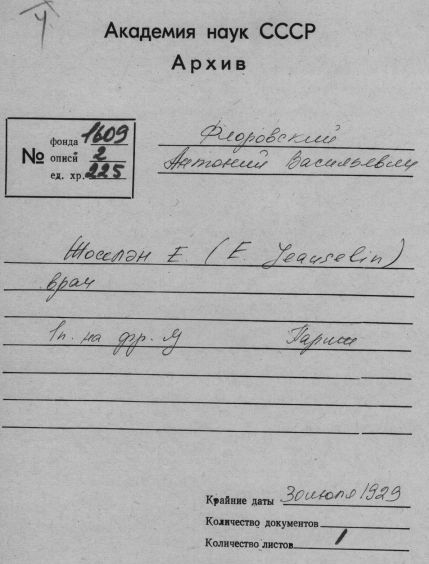 4
Академия наук СССР
Архив
№ фонда 1609
описи 2
ед. хр. 225
Флоровский
Антоний Васильевич
Жоселэн Е. (E. Jeanselin)
врач
1п. на фр. Я Париж
Крайние даты 30 июля 1929
Количество документов
Количество листов 1